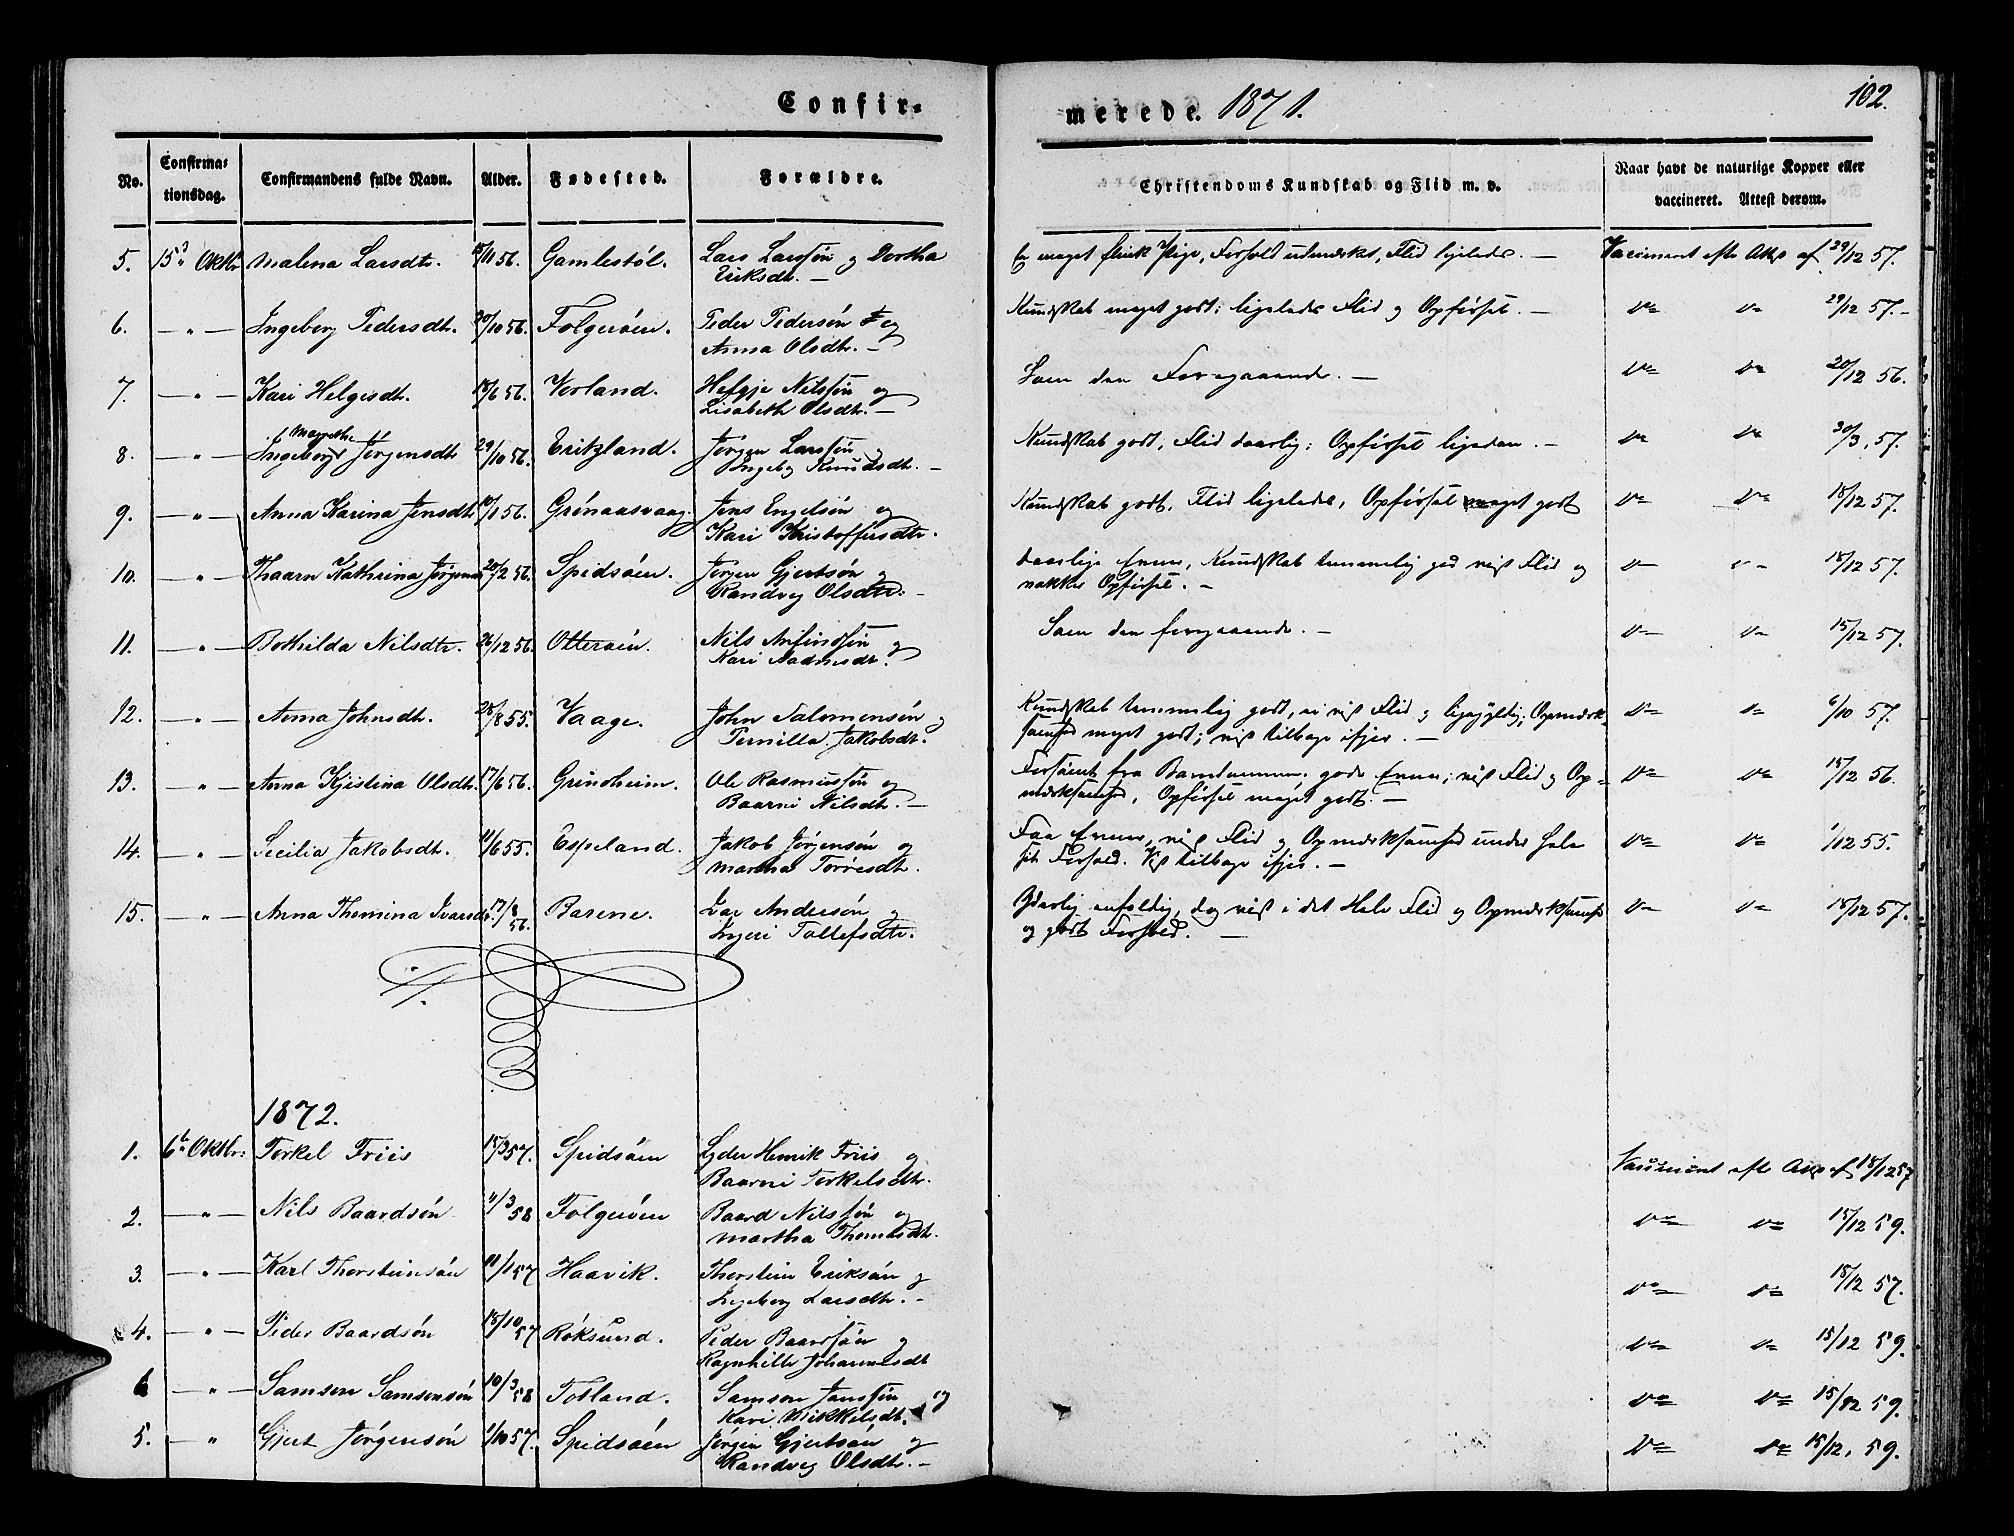 Confir-
merede. 1871.
102.
No.
Confirma-
tionsdag.
Confirmandens fulde Navn.
Alder.
Fødested.
Forældre.
Christendoms Kundskab og Flid m. v.
Naar havt de naturlige Kopper eller
vaccineret. Attest derom.
5. 15de Oktbr Malena Larsdtr. 15/11 56. Gamlestøl. Lars Larssøn og Dortha
Eriksdtr. —
En meget flink Pige, Forhold udmærket, Flid ligeledes. — Vaccineret efter Att. af 29/12 57.
6. — " — Ingeborg Pedersdtr. 20/10 56. Folgerøen. Peder Pedersøn og
Anna Olsdtr. —
Kundskab meget godt; ligeledes Flid og Opførsel. — 29/12 57. -
7. — " — Kari Helgesdtr. 18/6 56. Vorland. Helgje Nilssøn og
Lisabeth Olsdtr. —
Som den Foregaaende. — 20/12 56.
8. — " — Ingeborg Margrethe Jørgensdtr 29/10 56. Eritzland. Jørgen Larssøn og
Ingebg Knudsdtr. —
Kundskab godt, Flid daarlig; Opførsel ligedan. — 30/3, 57.
9. — " — Anna Karina Jensdtr 10/1 56. Grønaasvaag. Jens Engelsøn og
Kari Kristoffersdtr.
Kundskab godt, Flid ligeledes, Opførsel meget godt 15/12 57.
10. — " — Thaarn Kathrina Jørgensd 20/2 56. Spidsøen. Jørgen Gjertsøn og
Randveg Olsdtr. —
daarlige Evner, Kundskab temmelig god vist Flid og
vakker Opførsel. — 15/12 57.
11. — " — Bothilda Nilsdtr. 26/12 56. Otterøen. Nils Anfindsøn og
Kari Aadnesdtr.
Som den foregaaende. — 15/12 57.
12. — " — Anna Johnsdtr. 28/8 55. Vaage. John Salomonsøn og
Pernilla Jakobsdtr.
Kundskab temmelig godt, ei vist Flid og ligegyldig; Opmærk-
somhed meget godt; vist tilbage ifjor. — 6/10 57.
13. — " — Anna Kjistina Olsdtr. 17/6 56. Grindheim. Ole Rasmussøn og
Baarni Nilsdtr. —
Forsømt fra Barndommen. gode Evner; vist Flid og Op-
mærksomhed, Opførsel meget godt. — 15/12 56.
14. — " — Secilia Jakobsdtr. 11/6 55. Espeland. Jakob Jørgensøn og
Martha Torresdtr.
Faa Evner, vist Flid og Opmærksomhed under hele
sit Forhold. Vist tilbage ifjor. — 1/12 55.
15. — " — Anna Thomina Ivarsdr. 17/8 56. Barene. Ivar Andersøn og
Ingeri Tollefsdtr.
Yderlig enfoldig, dog vist i det Hele Flid og Opmærksomh
og godt Forhold. — 15/12 57.
1872.
1. 6te Oktbr: Torkel Friis 15/3 57. Spidsøen Lyder Henrik Friis og
Baarni Torkelsdtr.
Vaccineret efter Att. af 15/12 57
2. — " — Nils Baardsøn 11/3 58 Folgerøen Baard Nilssøn og
Martha Thomasdtr. 15/12 59.
3. — " — Karl Thorsteinsøn 11/1 57 Haavik. Thorstein Eriksøn og
Ingeborg Larsdtr. — 15/12 57.
4. — " — Peder Baardsøn 15/10 57 Røksund. Peder Baardsøn og
Ragnhille Johannesdt 15/12 59.
6 — " — Samson Samsonsøn 10/3 58 Totland. Samson Janssøn og
Kari Mikkelsdtr. 15/12 59.
5. — " Gjert Jørgensøn 1/10 57. Spidsøen Jørgen Gjertsøn og
Randveg Olsdtr. — 15/12, 59.